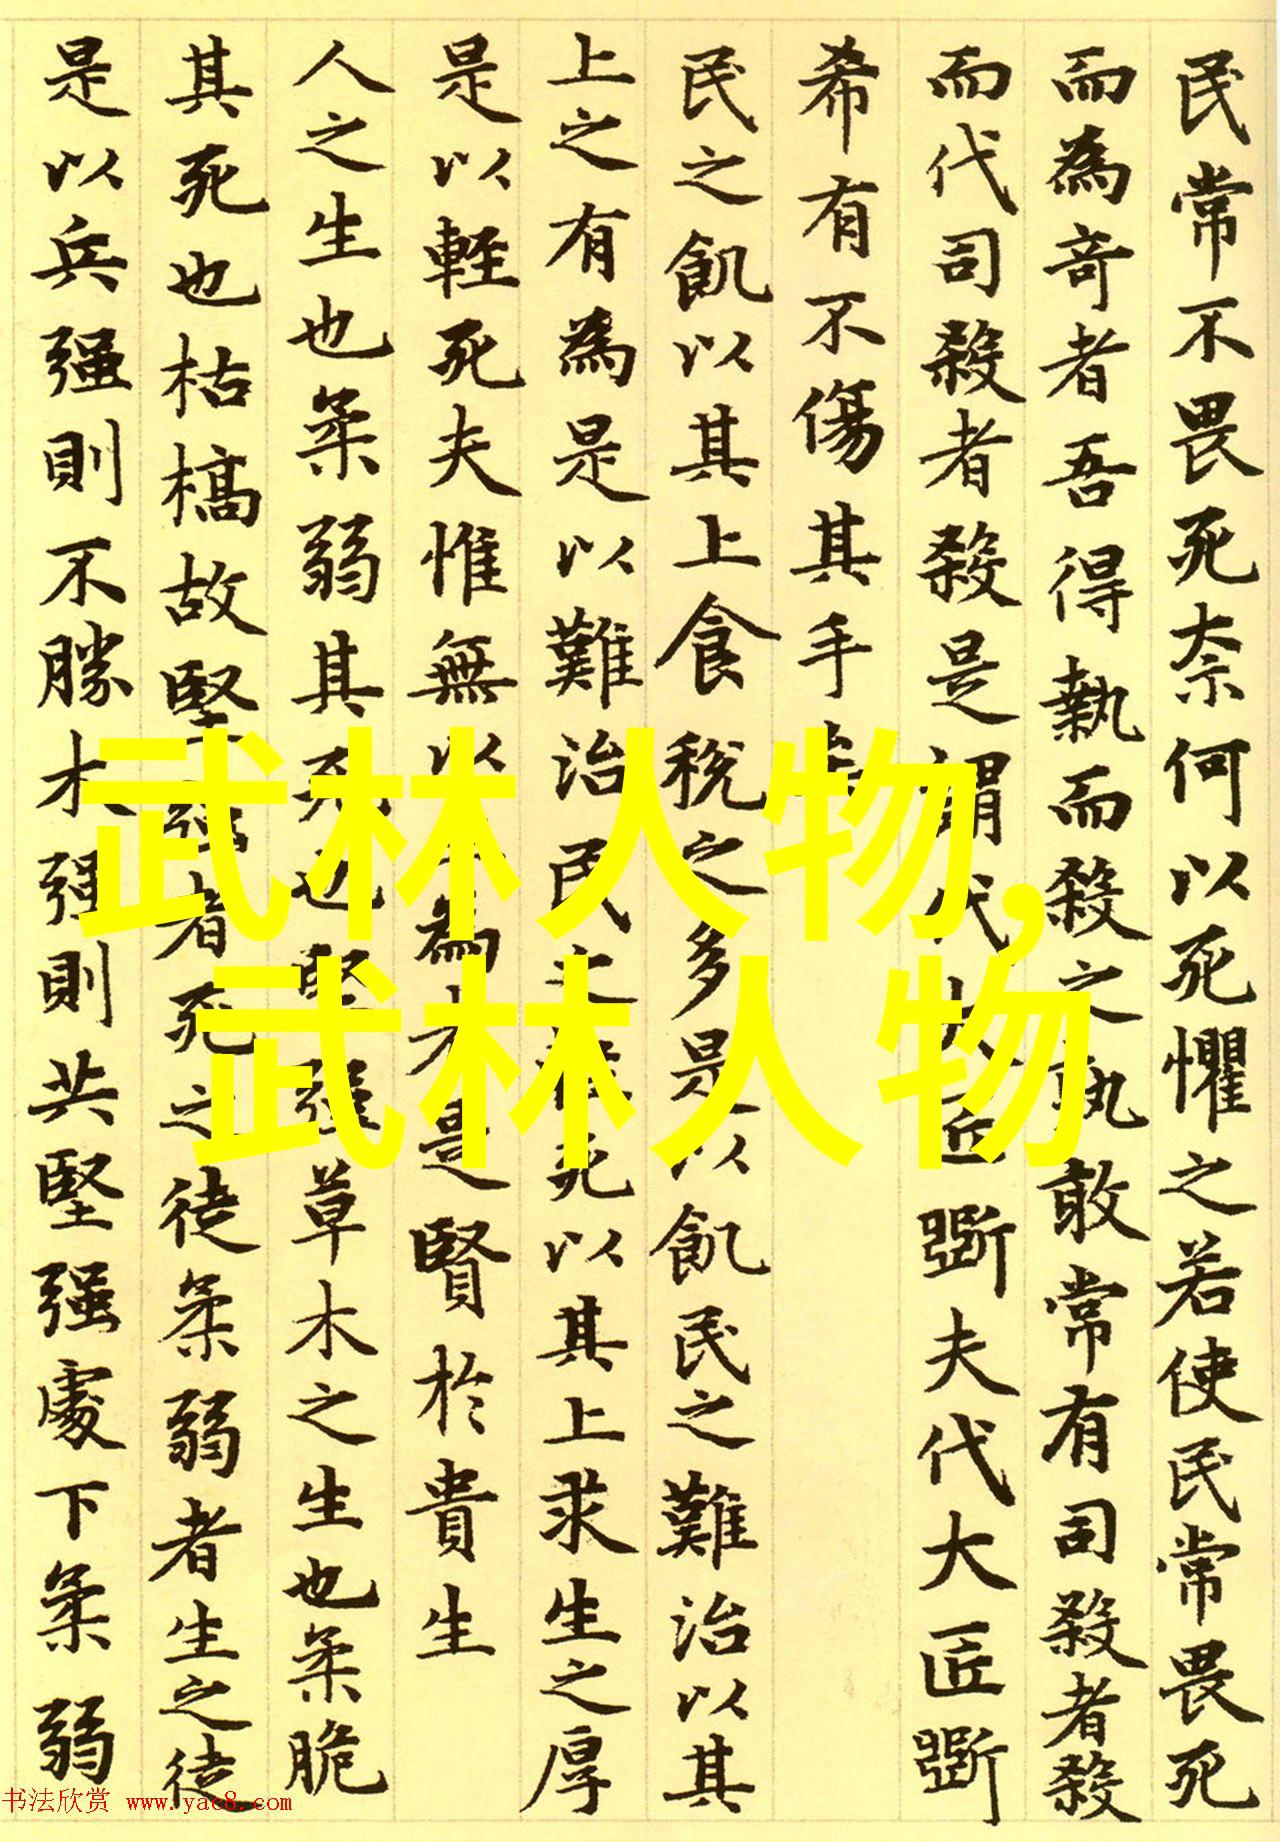 民常不畏死柰何以死懼之若使民常畏死
而為奇者吾得執而殺之孰敢常有司殺者殺
而代司殺者殺是謂代大匠斲夫代大匠斲
希有不傷其手矣
民之飢以其上食稅之多是以飢民之難治以其
上之有為是以難治民之輕死以其上求生之厚
是以輕死夫惟無以生為者是賢於貴生
人之生也柔弱其死也堅强草木之生也柔脆
其死也枯槁故堅强者死之徒柔弱者生之徒
是以兵强則不勝木强則共堅强處下柔弱
武林人物,
武林人物
书法欣赏 www.yac8.com